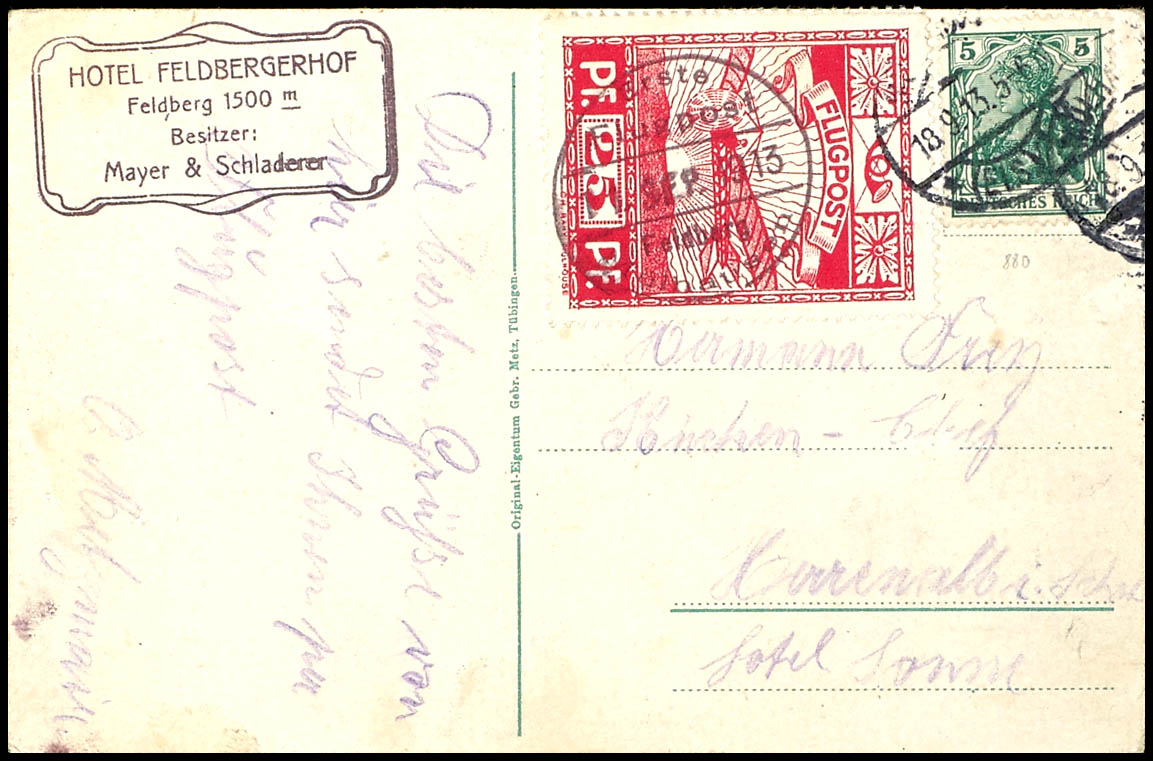 HOTEL FELDBERGERHOF
Feldberg 1500 m
Besitzer:
Mayer & Schladerer
Die besten Grüße von
hir sendet Ihnen per
Flugpost
Original-Eigentum Gebr. Metz, Tübingen.
FLUGPOST
PF. 25 PF.
Erste
Flugpost
SEP. 1913
Feldberg
5 5
DEUTSCHES REICH
18.9.13.5-6
880
Hermann Frey
Küchen - Chef
Herrenalb i. Schw
Hotel Sonne